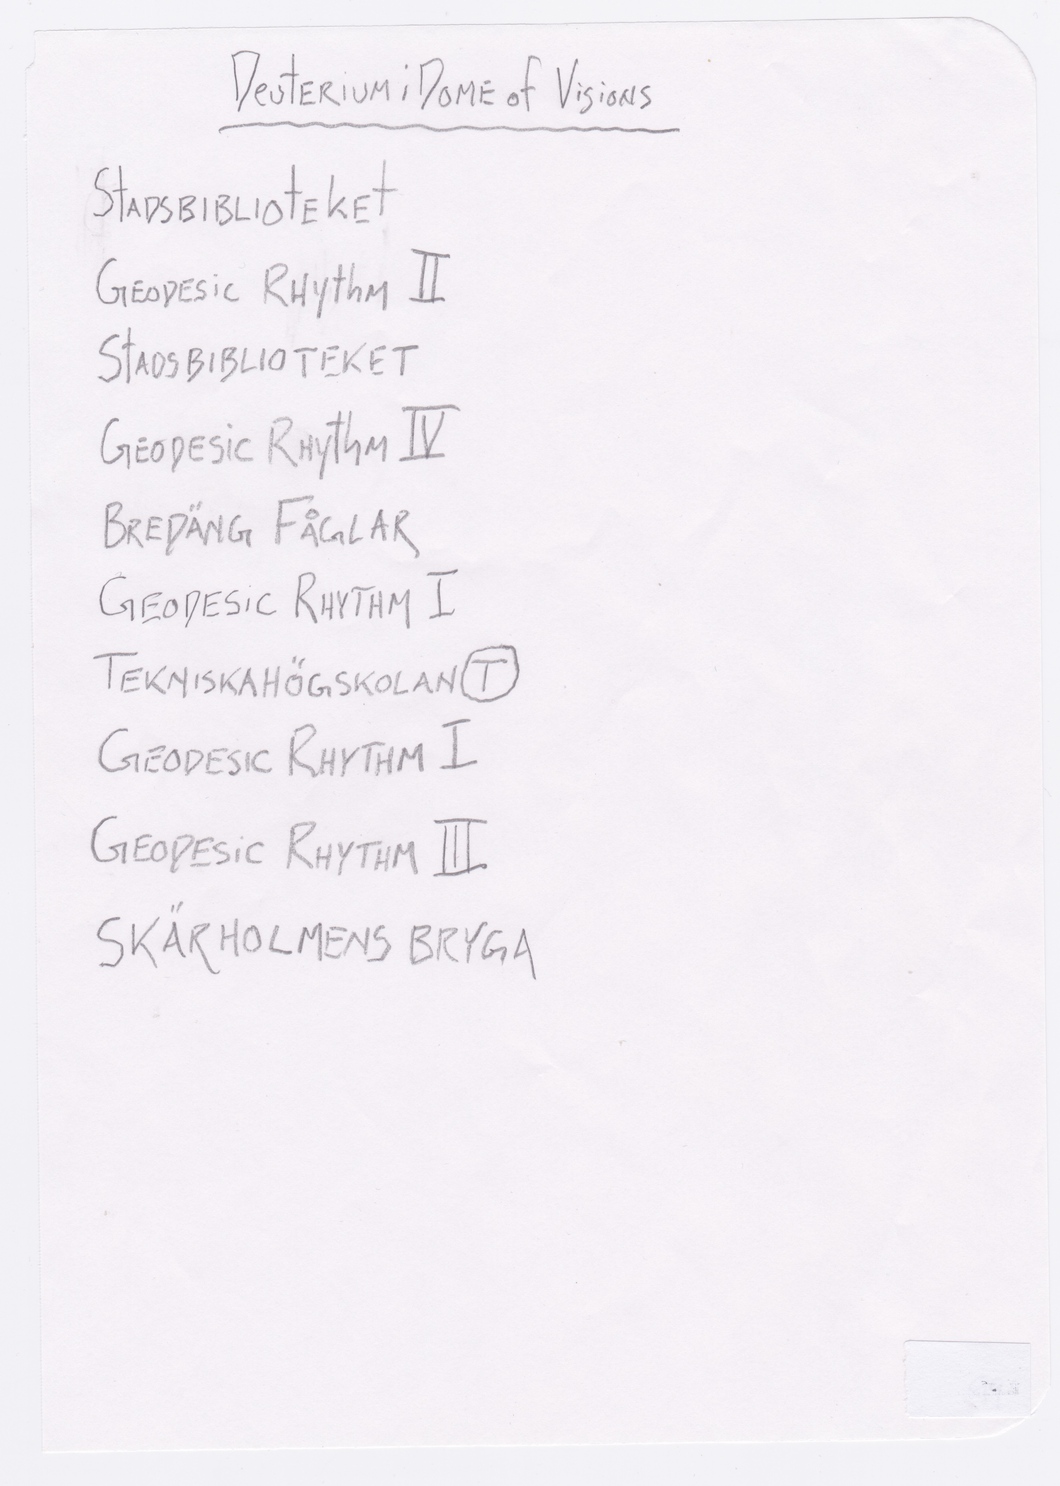 Deuterium i Dome of Visions
Stadsbiblioteket
Geodesic Rhythm II
Stadsbiblioteket
Geodesic Rhythm IV
Bredäng Fåglar
Geodesic Rhythm I
Tekniskahögskolan T
Geodesic Rhythm I
Geodesic Rhythm III
SKÄRHOLMENS BRYGA